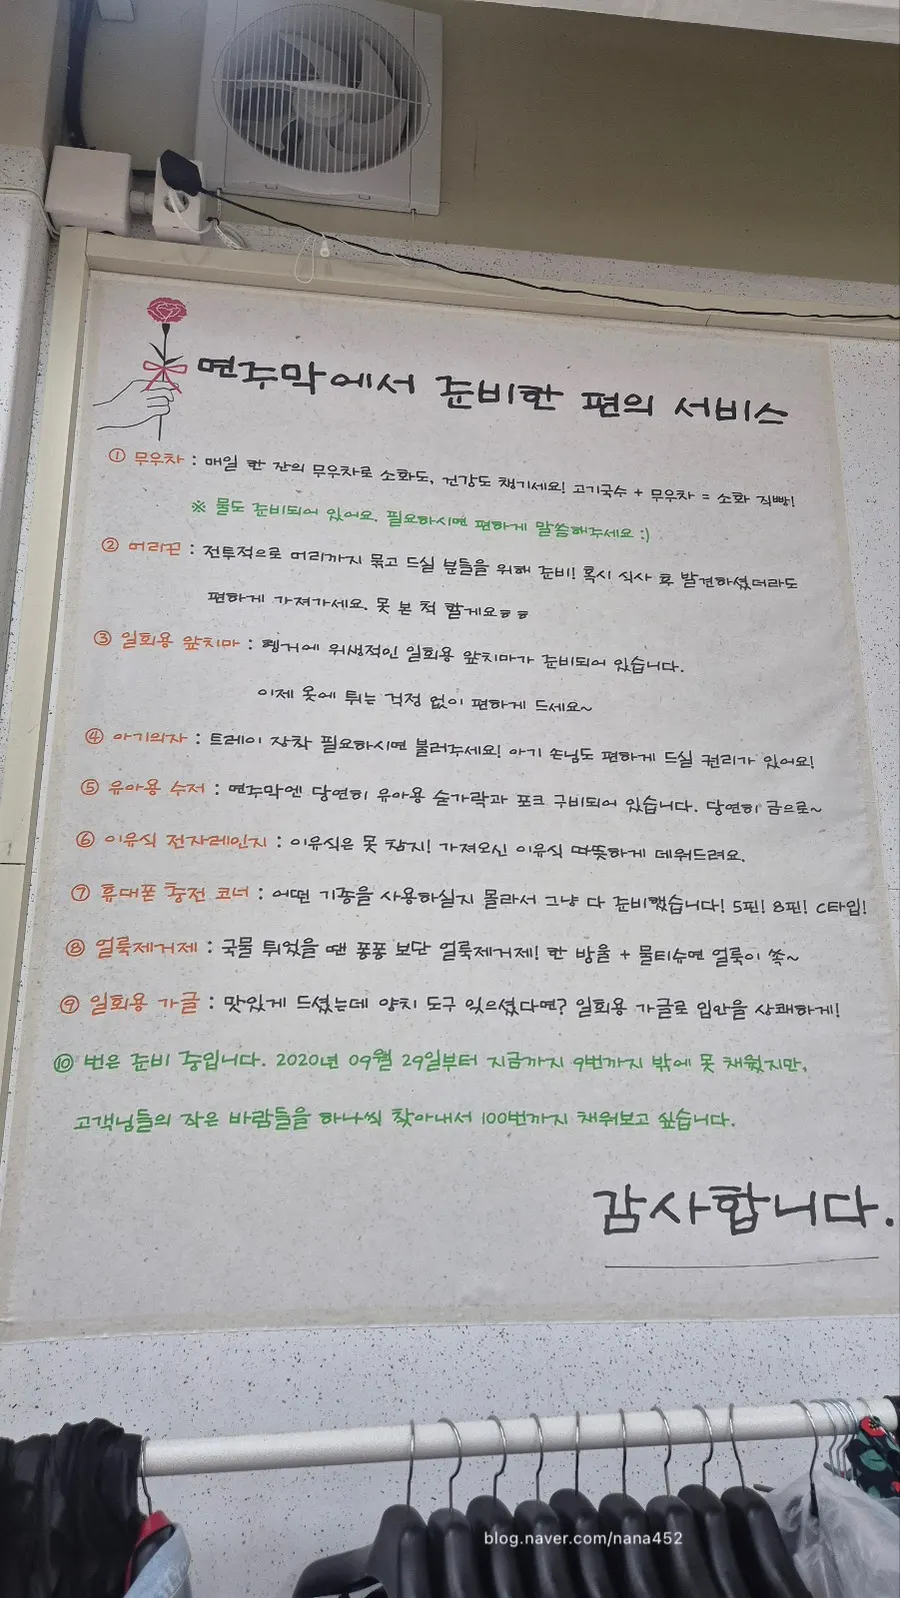 면주막에서 준비한 편의 서비스
① 무우차 : 매일 한 잔의 무우차로 소화도, 건강도 챙기세요! 고기국수 + 무우차 = 소화 직빵!
※ 물도 준비되어 있어요. 필요하시면 편하게 말씀해주세요 :)
② 머리끈 : 전투적으로 머리까지 묶고 드실 분들을 위해 준비! 혹시 식사 후 발견하셨더라도
편하게 가져가세요. 못 본 척 할게요ㅎㅎ
③ 일회용 앞치마 : 행거에 위생적인 일회용 앞치마가 준비되어 있습니다.
이제 옷에 튀는 걱정 없이 편하게 드세요~
④ 아기의자 : 트레이 장착 필요하시면 불러주세요! 아기 손님도 편하게 드실 권리가 있어요!
⑤ 유아용 수저 : 면주막엔 당연히 유아용 숟가락과 포크 구비되어 있습니다. 당연히 공으로~
⑥ 이유식 전자레인지 : 이유식은 못 참지! 가져오신 이유식 따뜻하게 데워드려요.
⑦ 휴대폰 충전 코너 : 어떤 기종을 사용하실지 몰라서 그냥 다 준비했습니다! 5핀! 8핀! C타입!
⑧ 얼룩제거제 : 국물 튀었을 땐 퐁퐁 보단 얼룩제거제! 한 방울 + 물티슈면 얼룩이 쏙~
⑨ 일회용 가글 : 맛있게 드셨는데 양치 도구 잊으셨다면? 일회용 가글로 입안을 상쾌하게!
⑩ 번은 준비 중입니다. 2020년 09월 29일부터 지금까지 9번까지 밖에 못 채웠지만,
고객님들의 작은 바람들을 하나씩 찾아내서 100번까지 채워보고 싶습니다.
감사합니다.
blog.naver.com/nana452